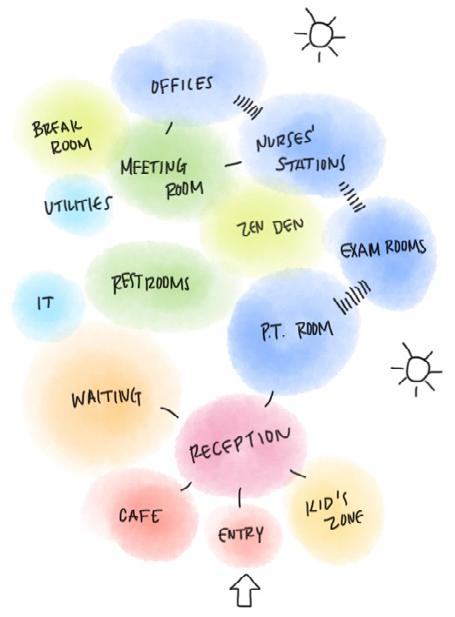 OFFICES
BREAK
ROOM
NURSES'
STATIONS
MEETING
ROOM
UTILITIES
ZEN DEN
EXAM ROOMS
RESTROOMS
IT
P.T. ROOM
WAITING
RECEPTION
CAFE
ENTRY
KID'S
ZONE